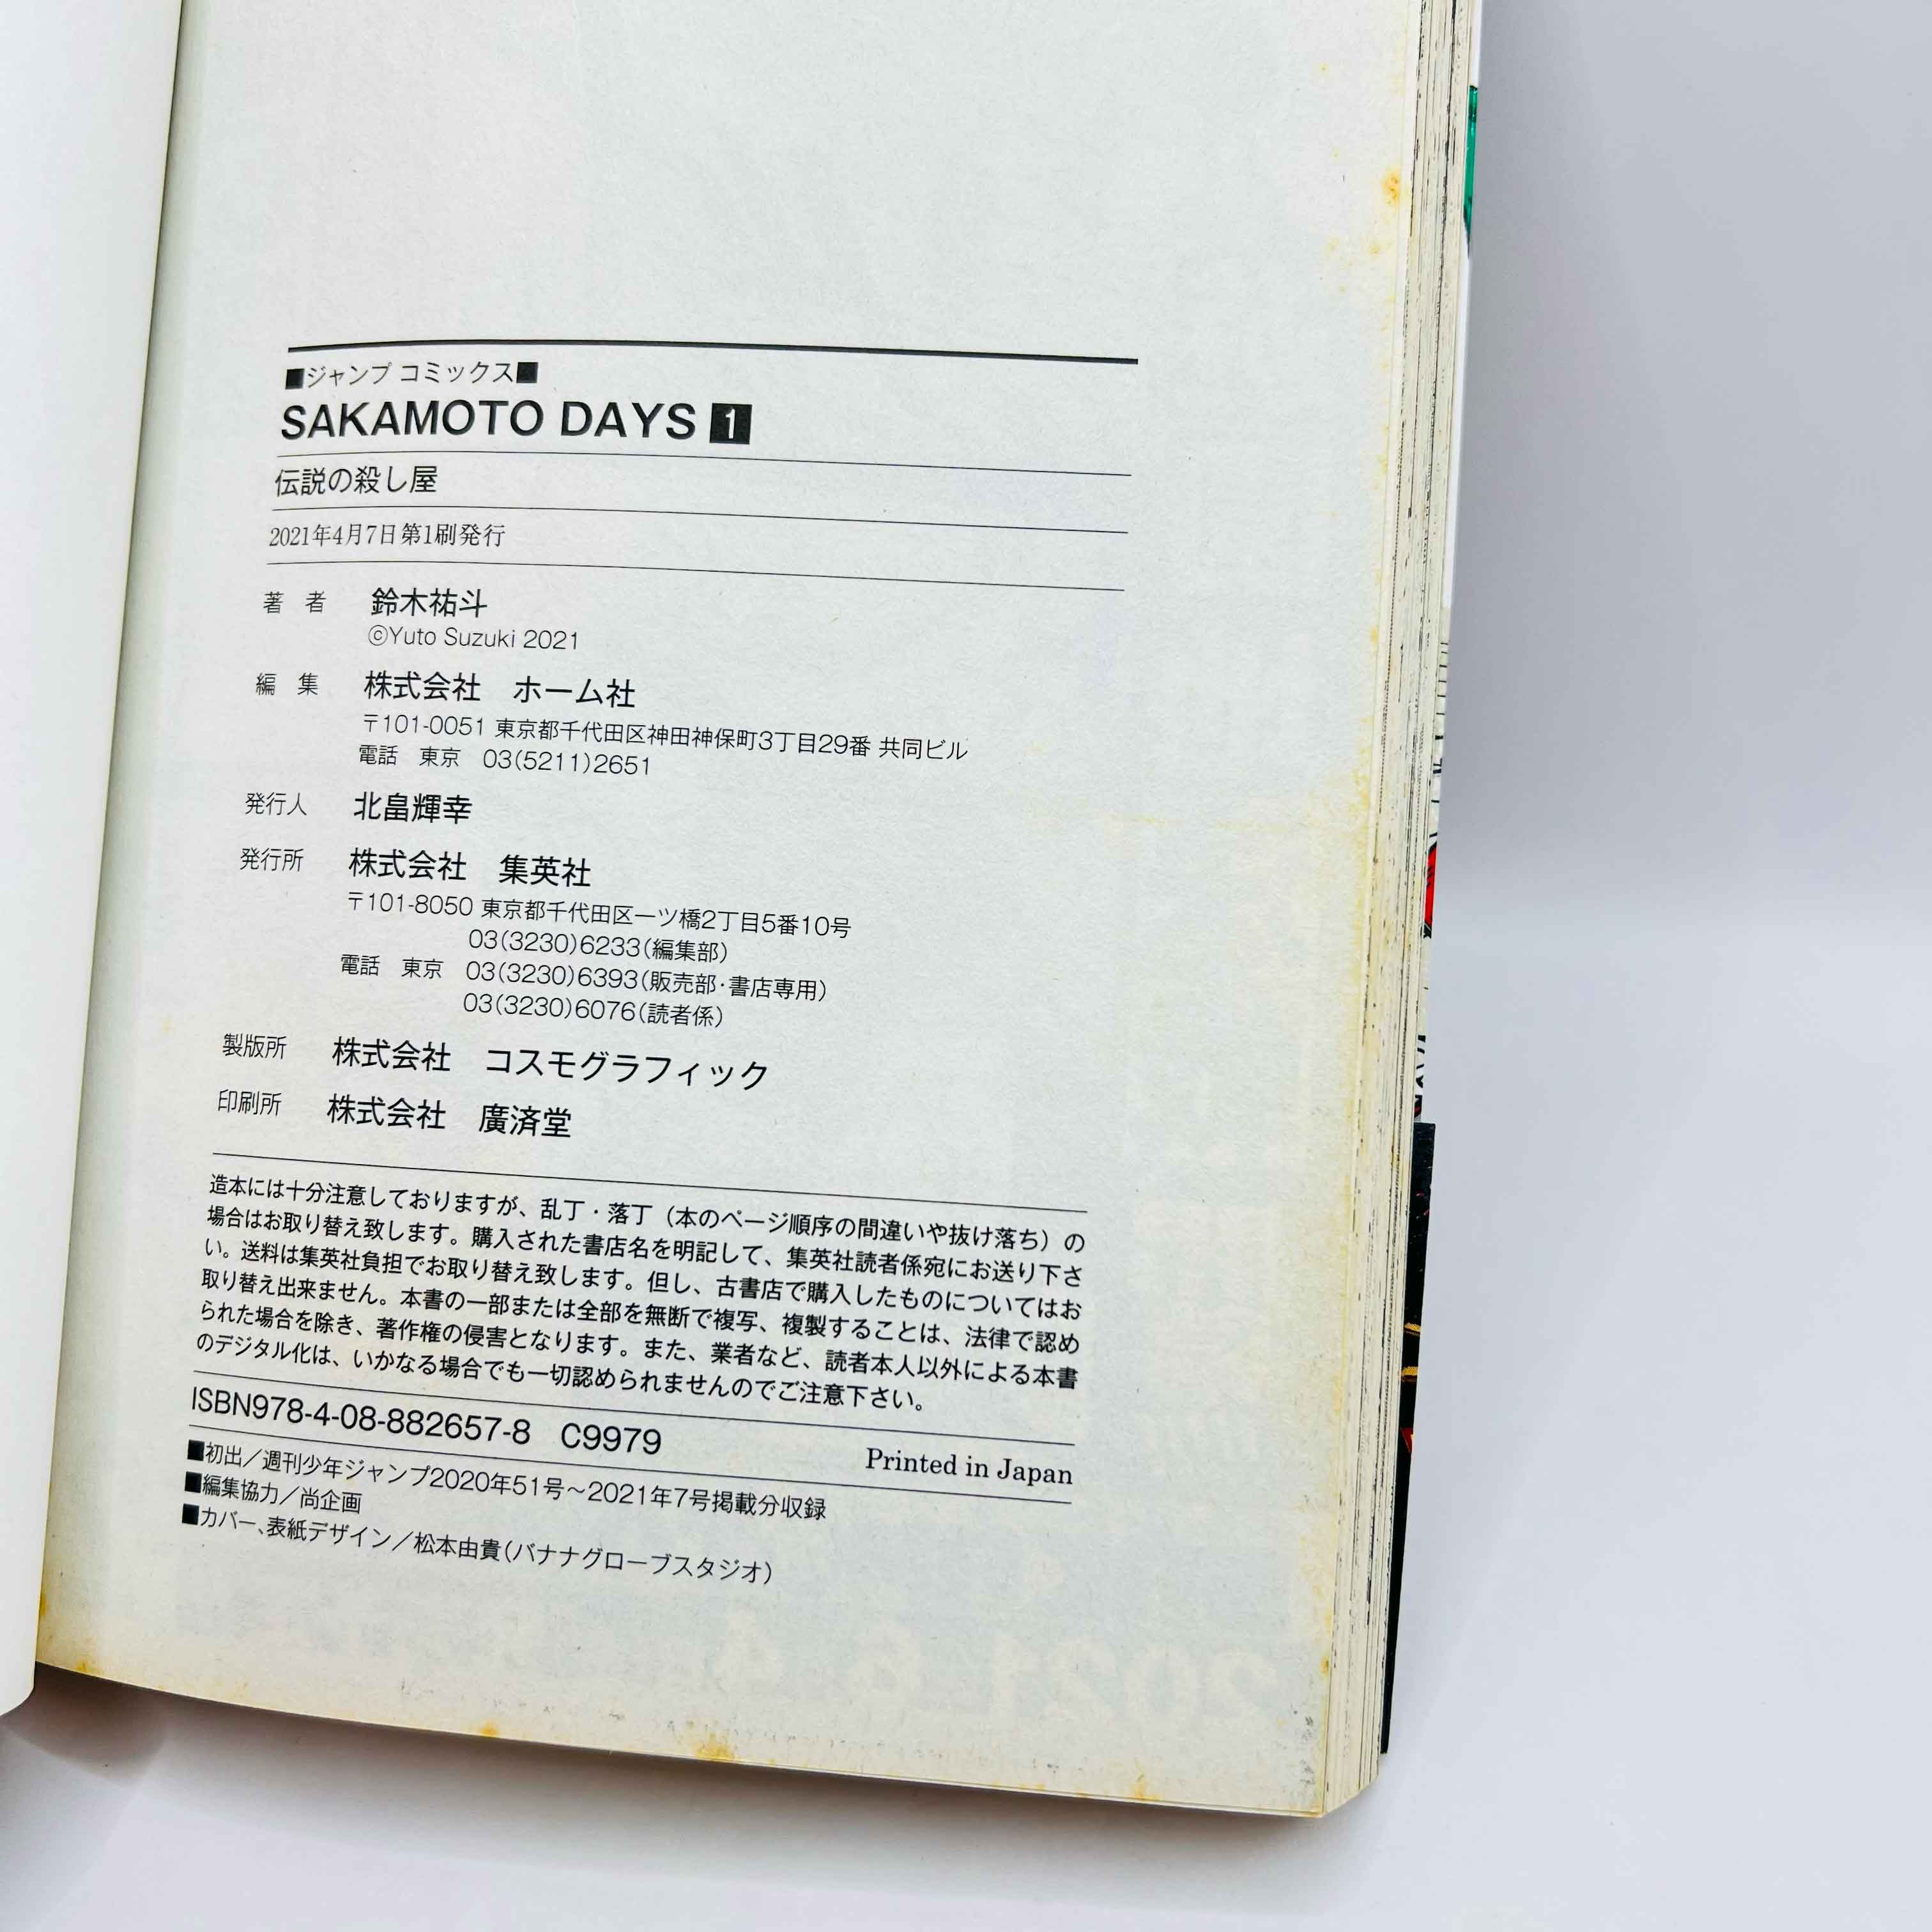 ■ジャンプ コミックス■
SAKAMOTO DAYS 1
伝説の殺し屋
2021年4月7日第1刷発行
著 者 鈴木祐斗
©Yuto Suzuki 2021
編 集 株式会社 ホーム社
〒101-0051 東京都千代田区神田神保町3丁目29番 共同ビル
電話 東京 03(5211)2651
発行人 北畠輝幸
発行所 株式会社 集英社
〒101-8050 東京都千代田区一ツ橋2丁目5番10号
03(3230)6233(編集部)
電話 東京 03(3230)6393(販売部·書店専用)
03(3230)6076(読者係)
製版所 株式会社 コスモグラフィック
印刷所 株式会社 廣済堂
造本には十分注意しておりますが、乱丁・落丁（本のページ順序の間違いや抜け落ち）の
場合はお取り替え致します。購入された書店名を明記して、集英社読者係宛にお送り下さ
い。送料は集英社負担でお取り替え致します。但し、古書店で購入したものについてはお
取り替え出来ません。本書の一部または全部を無断で複写、複製することは、法律で認め
られた場合を除き、著作権の侵害となります。また、業者など、読者本人以外による本書
のデジタル化は、いかなる場合でも一切認められませんのでご注意下さい。
ISBN978-4-08-882657-8 C9979 Printed in Japan
■初出／週刊少年ジャンプ2020年51号～2021年7号掲載分収録
■編集協力／尚企画
■カバー、表紙デザイン／松本由貴(バナナグローブスタジオ)